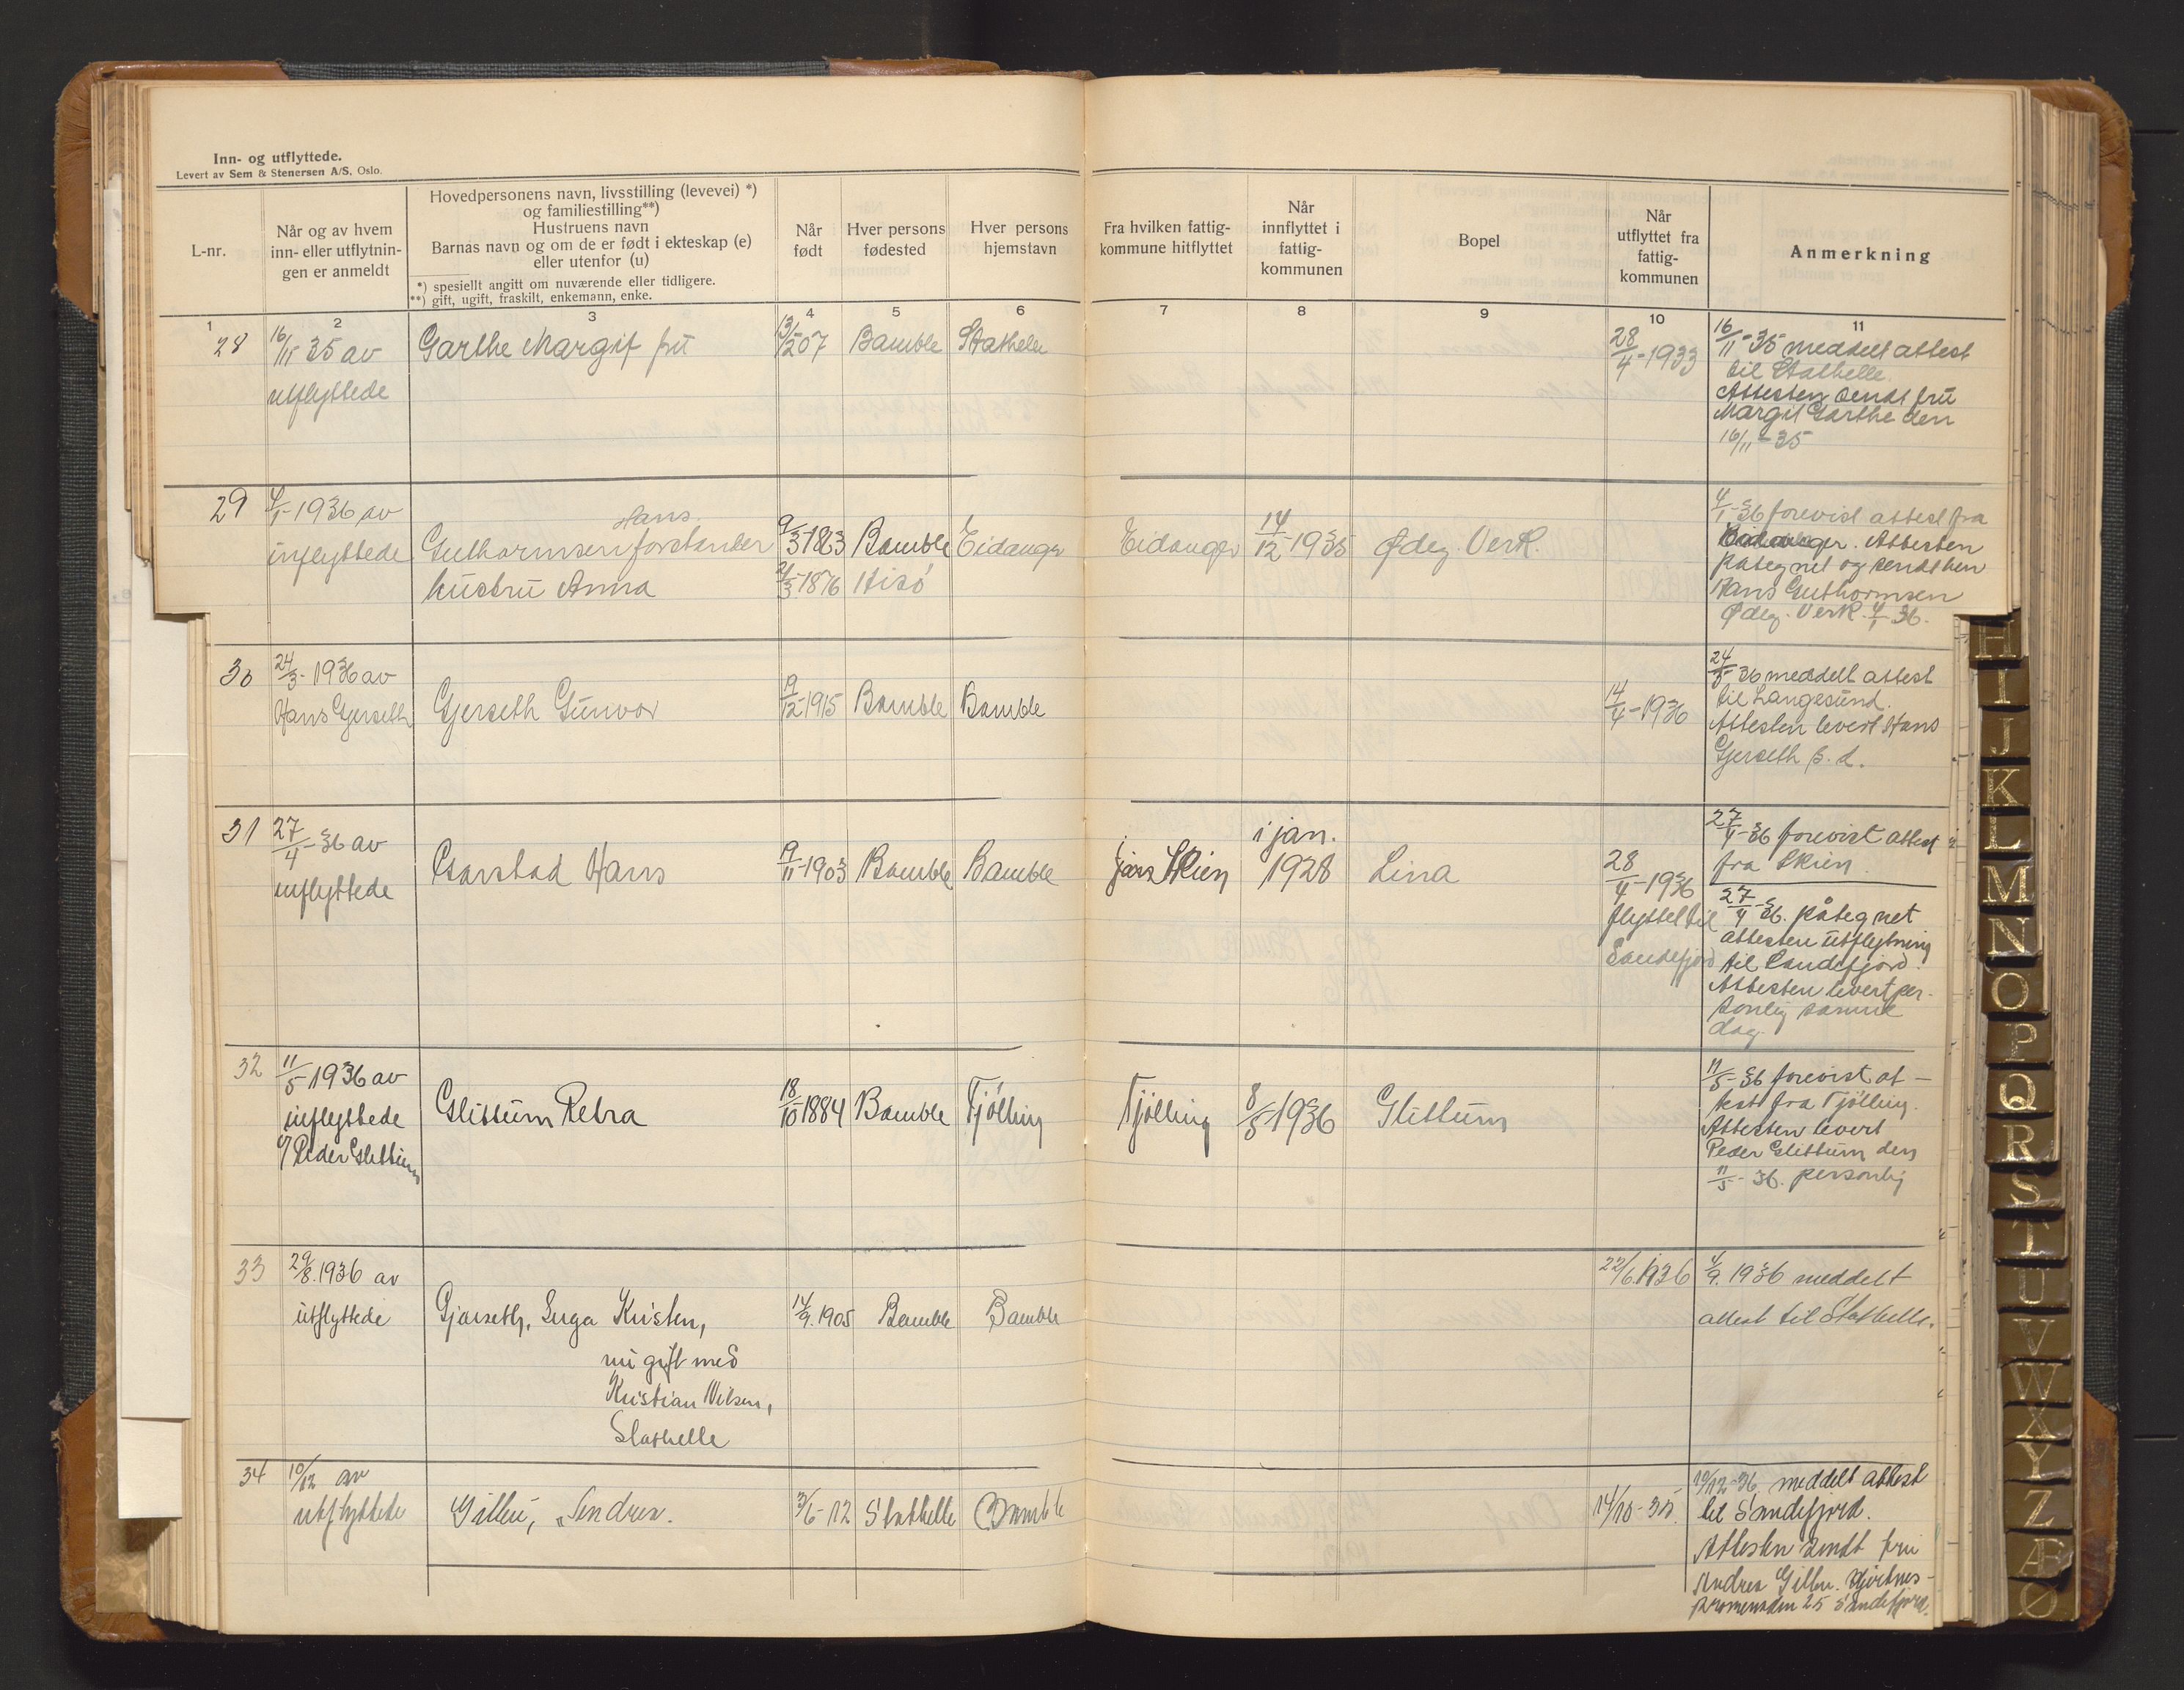 Inn- og utflyttede.
Levert av Sem & Stenersen A/S, Oslo.
L-nr.
Når og av hvem
inn- eller utflytnin-
gen er anmeldt
Hovedpersonens navn, livsstilling (levevei) *)
og familiestilling**)
Hustruens navn
Barnas navn og om de er født i ekteskap (e)
eller utenfor (u)
*) spesiellt angitt om nuværende eller tidligere.
**) gift, ugift, fraskilt, enkemann, enke.
Når
født
Hver persons
fødested
Hver persons
hjemstavn
Fra hvilken fattig-
kommune hitflyttet
Når
innflyttet i
fattig-
kommunen
Bopel
Når
utflyttet fra
fattig-
kommunen
Anmerkning
1 2 3 4 5 6 7 8 9 10 11
28 16/11 35 av
utflyttede
Garthe Margit fru
Bamble Stathelle
28/4-1933
16/11-35 meddelt attest
til Stathelle.
Attesten sendt fru
Margit Garthe den
16/11-35
29 4/1-1936 av
inflyttede
Hans
Guthormsen forstander 9/3 1863 Bamble Eidanger
hustru Anna 2/3-1876 Hisö
Eidanger 14/12-1935 Ødeg. Verk.
4/1-36 forevist attest fra
Eidanger. Attesten
påtegnet og sendt hen
Hans Guthormsen
Ødeg. Verk. 4/1-36.
30 24/3-1936 av
Hans Gjerseth
Gjerseth Gunvor 19/12-1915 Bamble Bamble
14/4-1936
24/3-36 meddelt attest
til Langesund.
Attesten levert Hans
Gjerseth s. d.
31 27/4-36 av
inflyttede
Hans 19/11-1903 Bamble Bamble
Skien i jan.
1928 Lina
28/4-1936
flyttet til
Sandefjord
27/4-36 forevist attest
fra Skien.
27/4-36. påtegnet
attesten utflytning
til Sandefjord.
Attesten levert per-
sonlig samme
dag.
32 11/5 1936 av
inflyttede
v/ Peder Glittum
Glittum Petra 18/10 1884 Bamble Tjölling
Tjölling 8/5-1936 Glittum
11/5-36 forevist at-
test fra Tjölling.
Attesten levert
Peder Glittum den
11/5-36. personlig
33 29/8.1936 av
utflyttede
Gjerseth, Inga Kristen,
nu gift med
Kristian Nilsen,
Stathelle
14/9.1905 Bamble Bamble
22/6.1936
4/9.1936 meddelt
attest til Stathelle.
34 10/12 av
utflyttede
Gilleu, Andrea.
3/6-12 Stathelle Bamble
14/10-35.
10/12-36 meddelt attest
til Sandefjord.
Attesten sendt fru
Andrea Hjertnes-
promenaden 25 Sandefjord.
H
I
J
K
L
M
N
O
P
Q
R
S
T
U
V
W
X
Y
Z
Æ
Ø